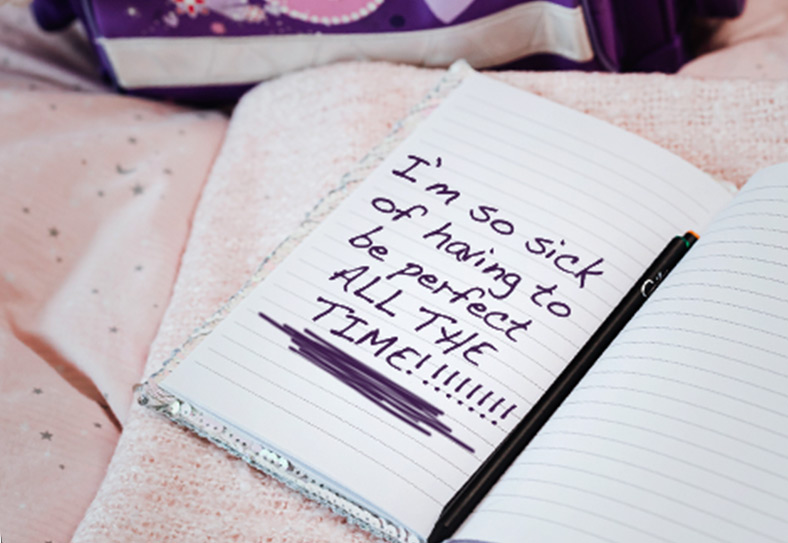 I'm so sick
of having to
be perfect
ALL THE
TIME!!!!!!!!!